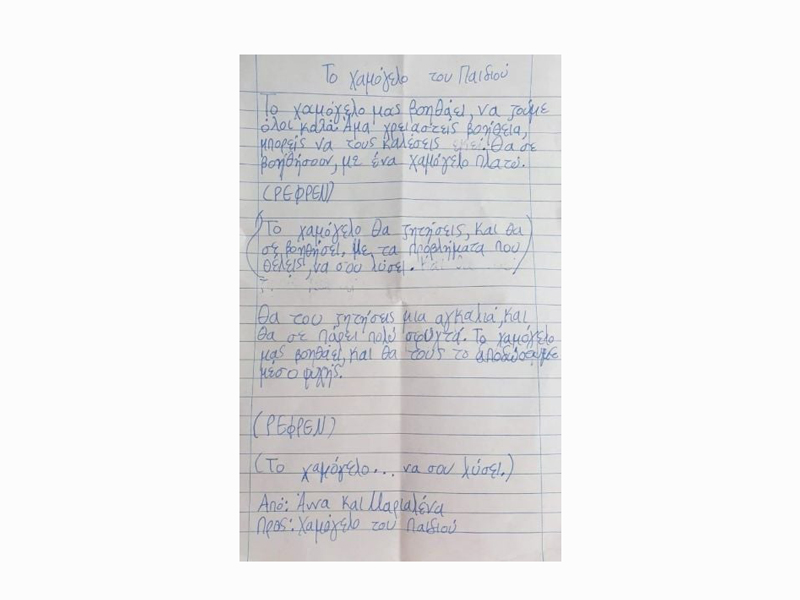 Το χαμόγελο του Παιδιού
Το χαμόγελο μας βοηθάει, να ζούμε
όλοι καλά. Άμα χρειαστείς βοήθεια,
μπορείς να τους καλέσεις Θα σε
βοηθήσουν, με ένα χαμόγελο πλατύ.
(ΡΕΦΡΕΝ)
(Το χαμόγελο θα ζητήσεις, και θα
σε βοηθήσει. Με τα προβλήματα που
θέλεις, να σου λύσει.)
Θα του ζητήσεις μια αγκαλιά, και
θα σε πάρει πολύ σφυχτά. Το χαμόγελο
μας βοηθάει, και θα τους το
μέσο ψυχής.
(ΡΕΦΡΕΝ)
(Το χαμόγελο... να σου λύσει.)
Από: Άννα και Μαριαλένα
Προς: Χαμόγελο του Παιδιού